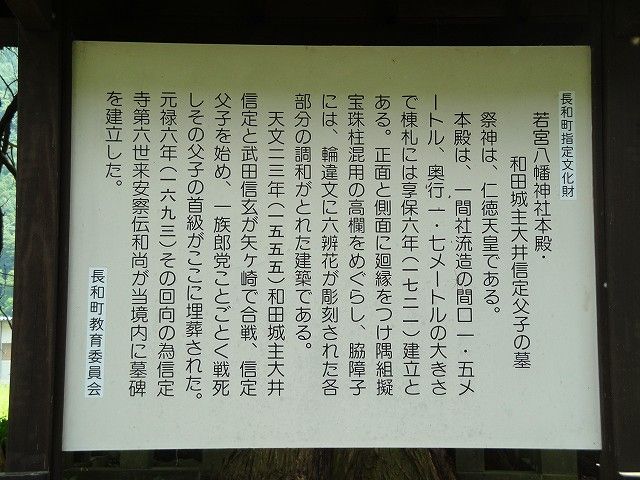 長和町指定文化財
若宮八幡神社本殿・
和田城主大井信定父子の墓
祭神は、仁徳天皇である。
本殿は、一間社流造の間口一・五メ
ートル、奥行一・七メートルの大きさ
で棟札には享保六年（一七二一）建立と
ある。正面と側面に廻縁をつけ隅組擬
宝珠柱混用の高欄をめぐらし、脇障子
には、輪違文に六辨花が彫刻された各
部分の調和がとれた建築である。
天文二三年（一五五五）和田城主大井
信定と武田信玄が矢ヶ崎で合戦、信定
父子を始め、一族郎党ことごとく戦死
しその父子の首級がここに埋葬された。
元禄六年（一六九三）その回向の為信定
寺第六世来安察伝和尚が当境内に墓碑
を建立した。
長和町教育委員会